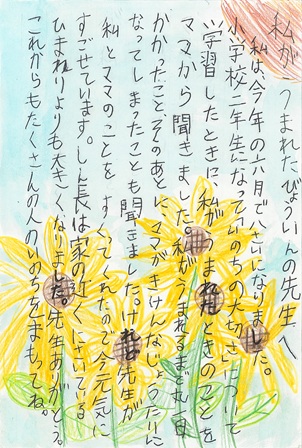 私がうまれたびょういんの先生へ
私は、今年の六月で八さいになりました。
小学校二年生になっていのちの大切さについて
学習したときに、私がうまれたときのことを
ママから聞きました。私がうまれるまで丸一日
かかったこと、そのあとに、ママがきけんなじょうたいに
なってしまったことも聞きました。けれど先生が
私とママのことをすくってくれたので今元気に
すごせています。しん長は家の近くにさいている
ひまわりよりも大きくなりました。先生ありがとう。
これからもたくさんの人のいのちをまもってね。